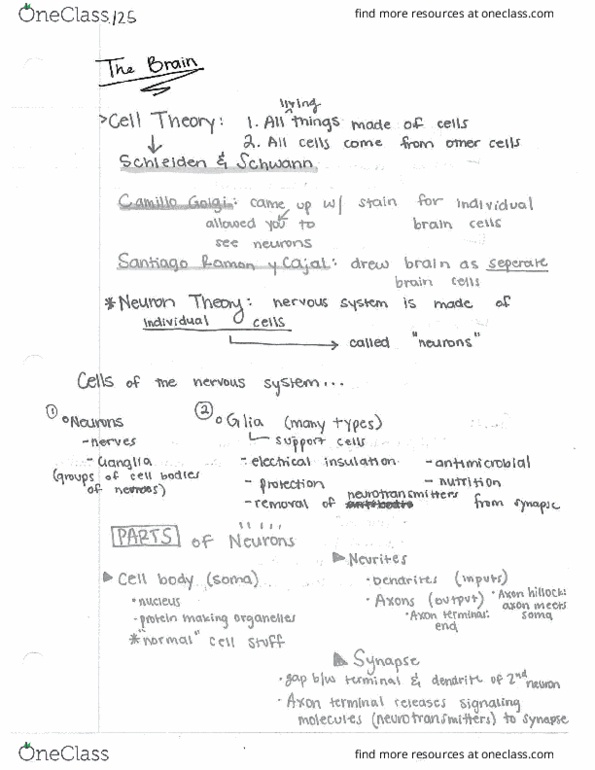 OneClass
1/25
find more resources at oneclass.com
The Brain
>Cell Theory: 1. All living things made of cells
2. All cells come from other cells
Schleiden & Schwann
Camillo Golgi: came up w/ stain for individual
allowed you to brain cells
see neurons
Santiago Ramon y Cajal: drew brain as seperate
brain cells
*Neuron Theory: nervous system is made of
individual cells
called "neurons"
Cells of the nervous system...
① Neurons ② Glia (many types)
- nerves support cells
- Ganglia - electrical insulation - antimicrobial
(groups of cell bodies - protection - nutrition
of nerves) - removal of neurotransmitters from synapse
PARTS of Neurons
Neurites
Cell body (soma) • Dendrites (inputs)
• nucleus • Axons (output) • Axon hillock:
axon meets
• protein making organelles • Axon terminal: soma
end
*"normal" cell stuff
Synapse
• gap b/w terminal & dendrite of 2nd
neuron
• Axon terminal releases signaling
molecules (neurotransmitters) to synapse
OneClass
find more resources at oneclass.com